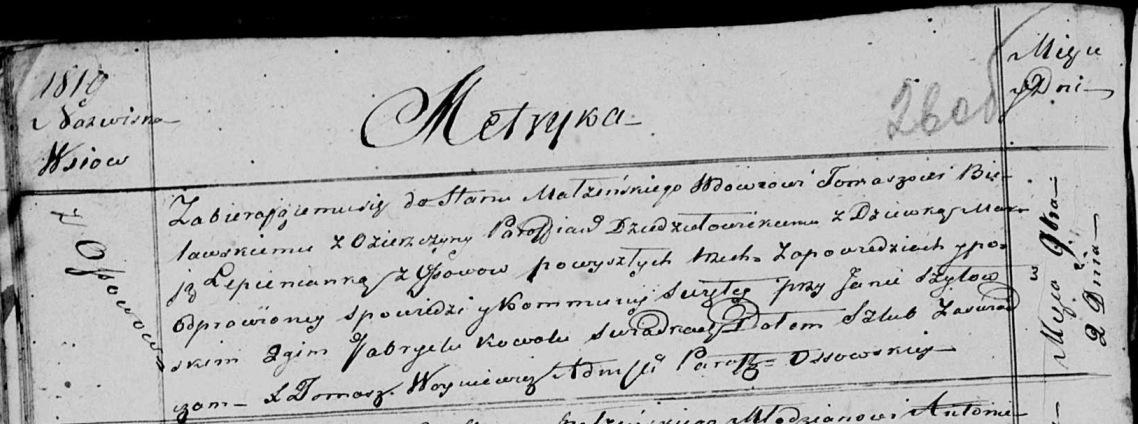 1819
Nazwiska
Wsiow
Metryka
26об
Miąc
y Dni
z Osowow
Zabieraiącemu się do Stanu Małżeńskiego Wdowcowi Tomaszowi Bie-
ławskiemu z Ozierszczyny Paroffiad Dziedziłowickiemu z Dziewką Mar-
ją Lepiemanną z Osowow powyszłych trech Zapowiedziach y po
odprawioney spowiedzi y Kommunij Swiętey przy Janie Szyłow
skim 2gim Gabryelu Kowalu Swiadkach Dałem Szlub Zaswiad
czam X Tomasz Woyniewicz Adm Paroff Ossowskiey
3
Miąca
2 Dnia
Młodzianowi Antonie-